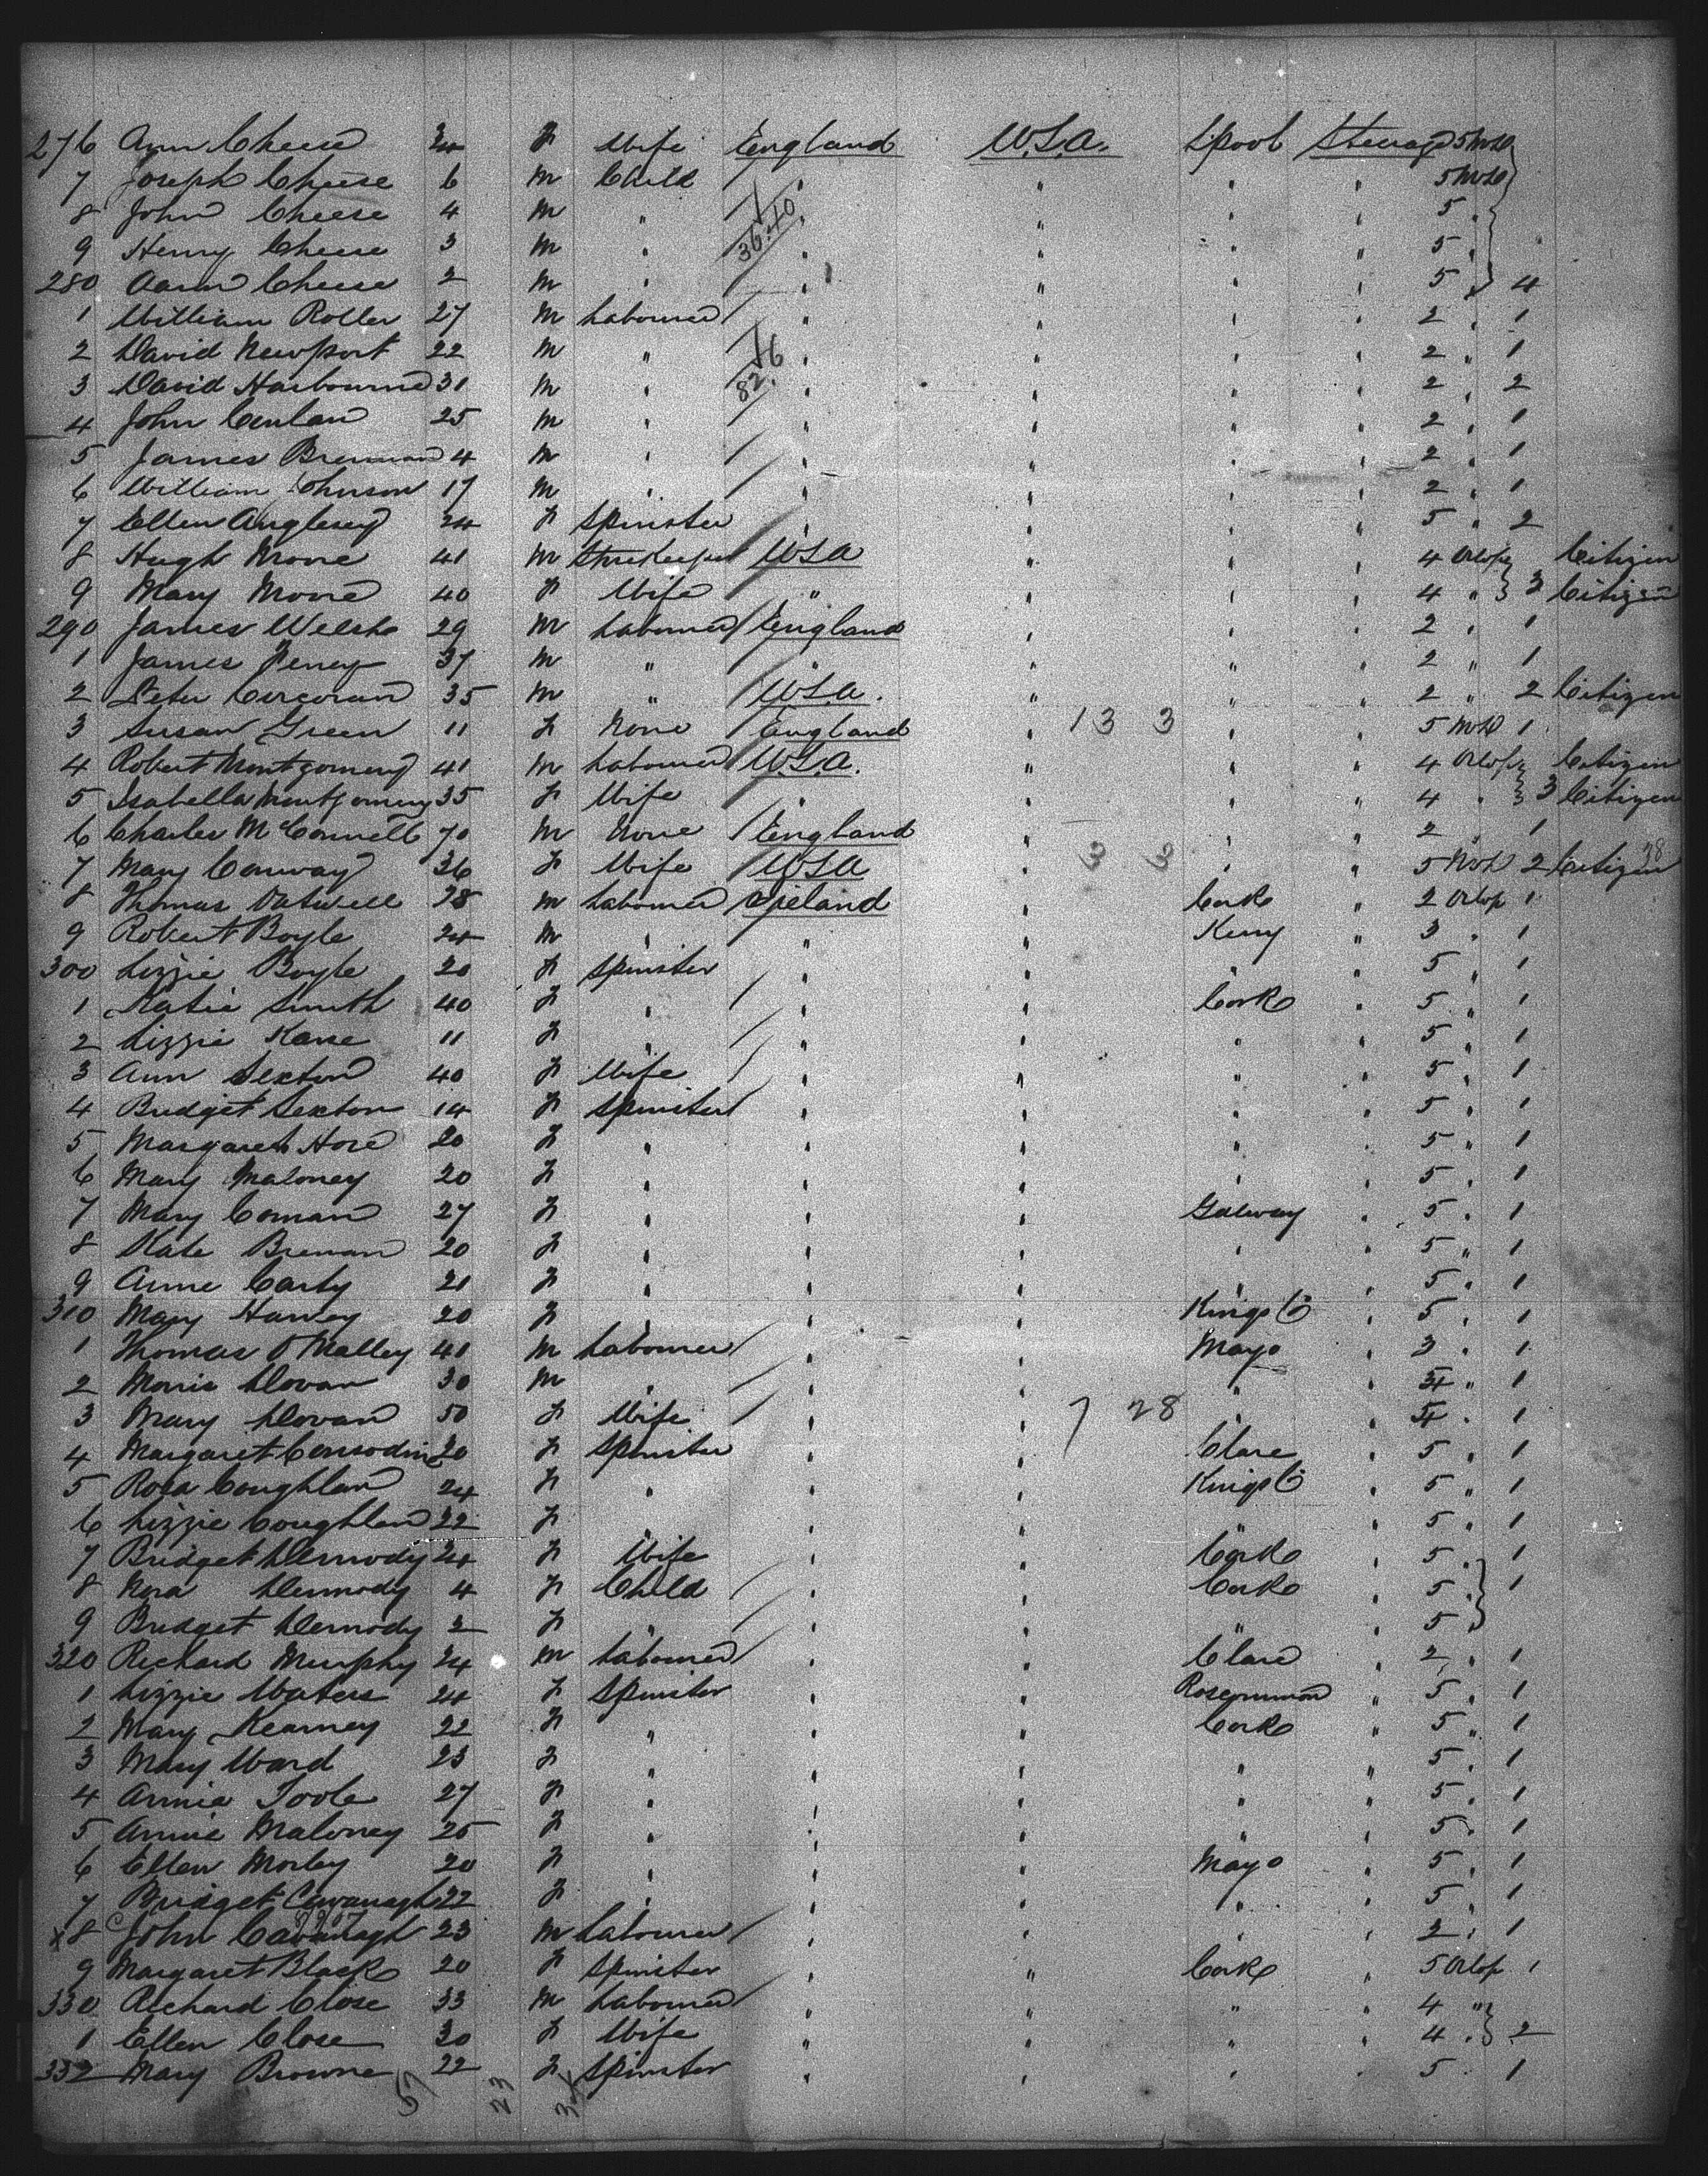 276 Ann Cheese 34 F Wife England U.S.A. L'pool Steerage 5 Mid
7 Joseph Cheese 6 M Child / " " " " 5 Mid
8 John Cheese 4 M " / " " " " 5 "
9 Henry Cheese 3 M " 36.40 " " " " 5 "
280 Aaron Cheese 2 M " " " " " 5 " 4
1 William Roller 27 M Labourer / " " " " 2 " 1
2 David Newport 22 M " / " " " " 2 " 1
3 David Harbourne 31 M " 82.16 " " " " 2 " 2
4 John Conlan 25 M " / " " " " 2 " 1
5 James Brennan 4 M " / " " " " 2 " 1
6 William Johnson 17 M " / " " " " 2 " 1
7 Ellen Anglesey 24 F Spinster / " " " " 5 " 2
8 Hugh Moore 41 M Storekeeper U.S.A " " " 4 Orlop Citizen
9 Mary Moore 40 F Wife " " " " 4 " 3 Citizen
290 James Welsh 29 M Labourer / England " " " 2 " 1
1 James Feney 37 M " / " " " " 2 " 1
2 Peter Corcoran 35 M " / U.S.A. " " " 2 " 2 Citizen
3 Susan Green 11 F None / England " 13 3 " " 5 Mid 1
4 Robert Montgomery 41 M Labourer U.S.A. " " " 4 Orlop Citizen
5 Isabella Montgomery 35 F Wife / " " " " 4 " 3 Citizen
6 Charles McConnell 70 M None / England " " " 2 " 1
7 Mary Conway 36 F Wife / U.S.A " 3 3 " " 5 Mid 2 Citizen 28
8 Thomas 28 M Labourer / Ireland " Cork " 2 Orlop 1
9 Robert Boyle 24 M " " " Kerry " 3 " 1
300 Lizzie Boyle 20 F Spinster / " " " " 5 " 1
1 Katie Smith 40 F " / " " Cork " 5 " 1
2 Lizzie Kane 11 F " / " " " " 5 " 1
3 Ann Sexton 40 F Wife / " " " " 5 " 1
4 Bridget Sexton 14 F Spinster / " " " " 5 " 1
5 Margaret Hore 20 F " " " " " 5 " 1
6 Mary Maloney 20 F " " " " " 5 " 1
7 Mary Coman 27 F " " " Galway " 5 " 1
8 Kate Brennan 20 F " " " " " 5 " 1
9 Anne Carty 21 F " " " " " 5 " 1
310 Mary Harvey 20 F " " " Kings Co " 5 " 1
1 Thomas O'Malley 41 M Labourer / " " Mayo " 3 " 1
2 Morris Dovan 30 M " / " " " " 4 " 1
3 Mary Dovan 50 F Wife " " 7 28 " " 4 " 1
4 Margaret Consodine 20 F Spinster " " Clare " 5 " 1
5 Rosa Coughlan 24 F " " " Kings Co " 5 " 1
6 Lizzie Coughlan 22 F " " " " " 5 " 1
7 Bridget Dermody 24 F Wife " " Cork " 5 " 1
8 Nora Dermody 4 F Child / " " Cork " 5 " 1
9 Bridget Dermody 2 F " / " " " " 5 "
320 Richard Murphy 24 M Labourer / " " Clare " 2 " 1
1 Lizzie Waters 24 F Spinster " " Roscommon " 5 " 1
2 Mary Kearney 22 F " " " Cork " 5 " 1
3 Mary Ward 23 F " " " " " 5 " 1
4 Annie Toole 27 F " " " " " 5 " 1
5 Annie Maloney 25 F " " " " " 5 " 1
6 Ellen Morley 20 F " " " Mayo " 5 " 1
7 Bridget Cavanagh 22 F " " " " " 5 " 1
x 8 John Cavanagh 23 M Labourer / " " " " 2 " 1
9 Margaret Black 20 F Spinster " " Cork " 5 Orlop 1
330 Richard Close 33 M Labourer / " " " " 4 "
1 Ellen Close 30 F Wife " " " " 4 " 2
332 Mary Browne 22 F Spinster " " " " 5 " 1
57 23 34